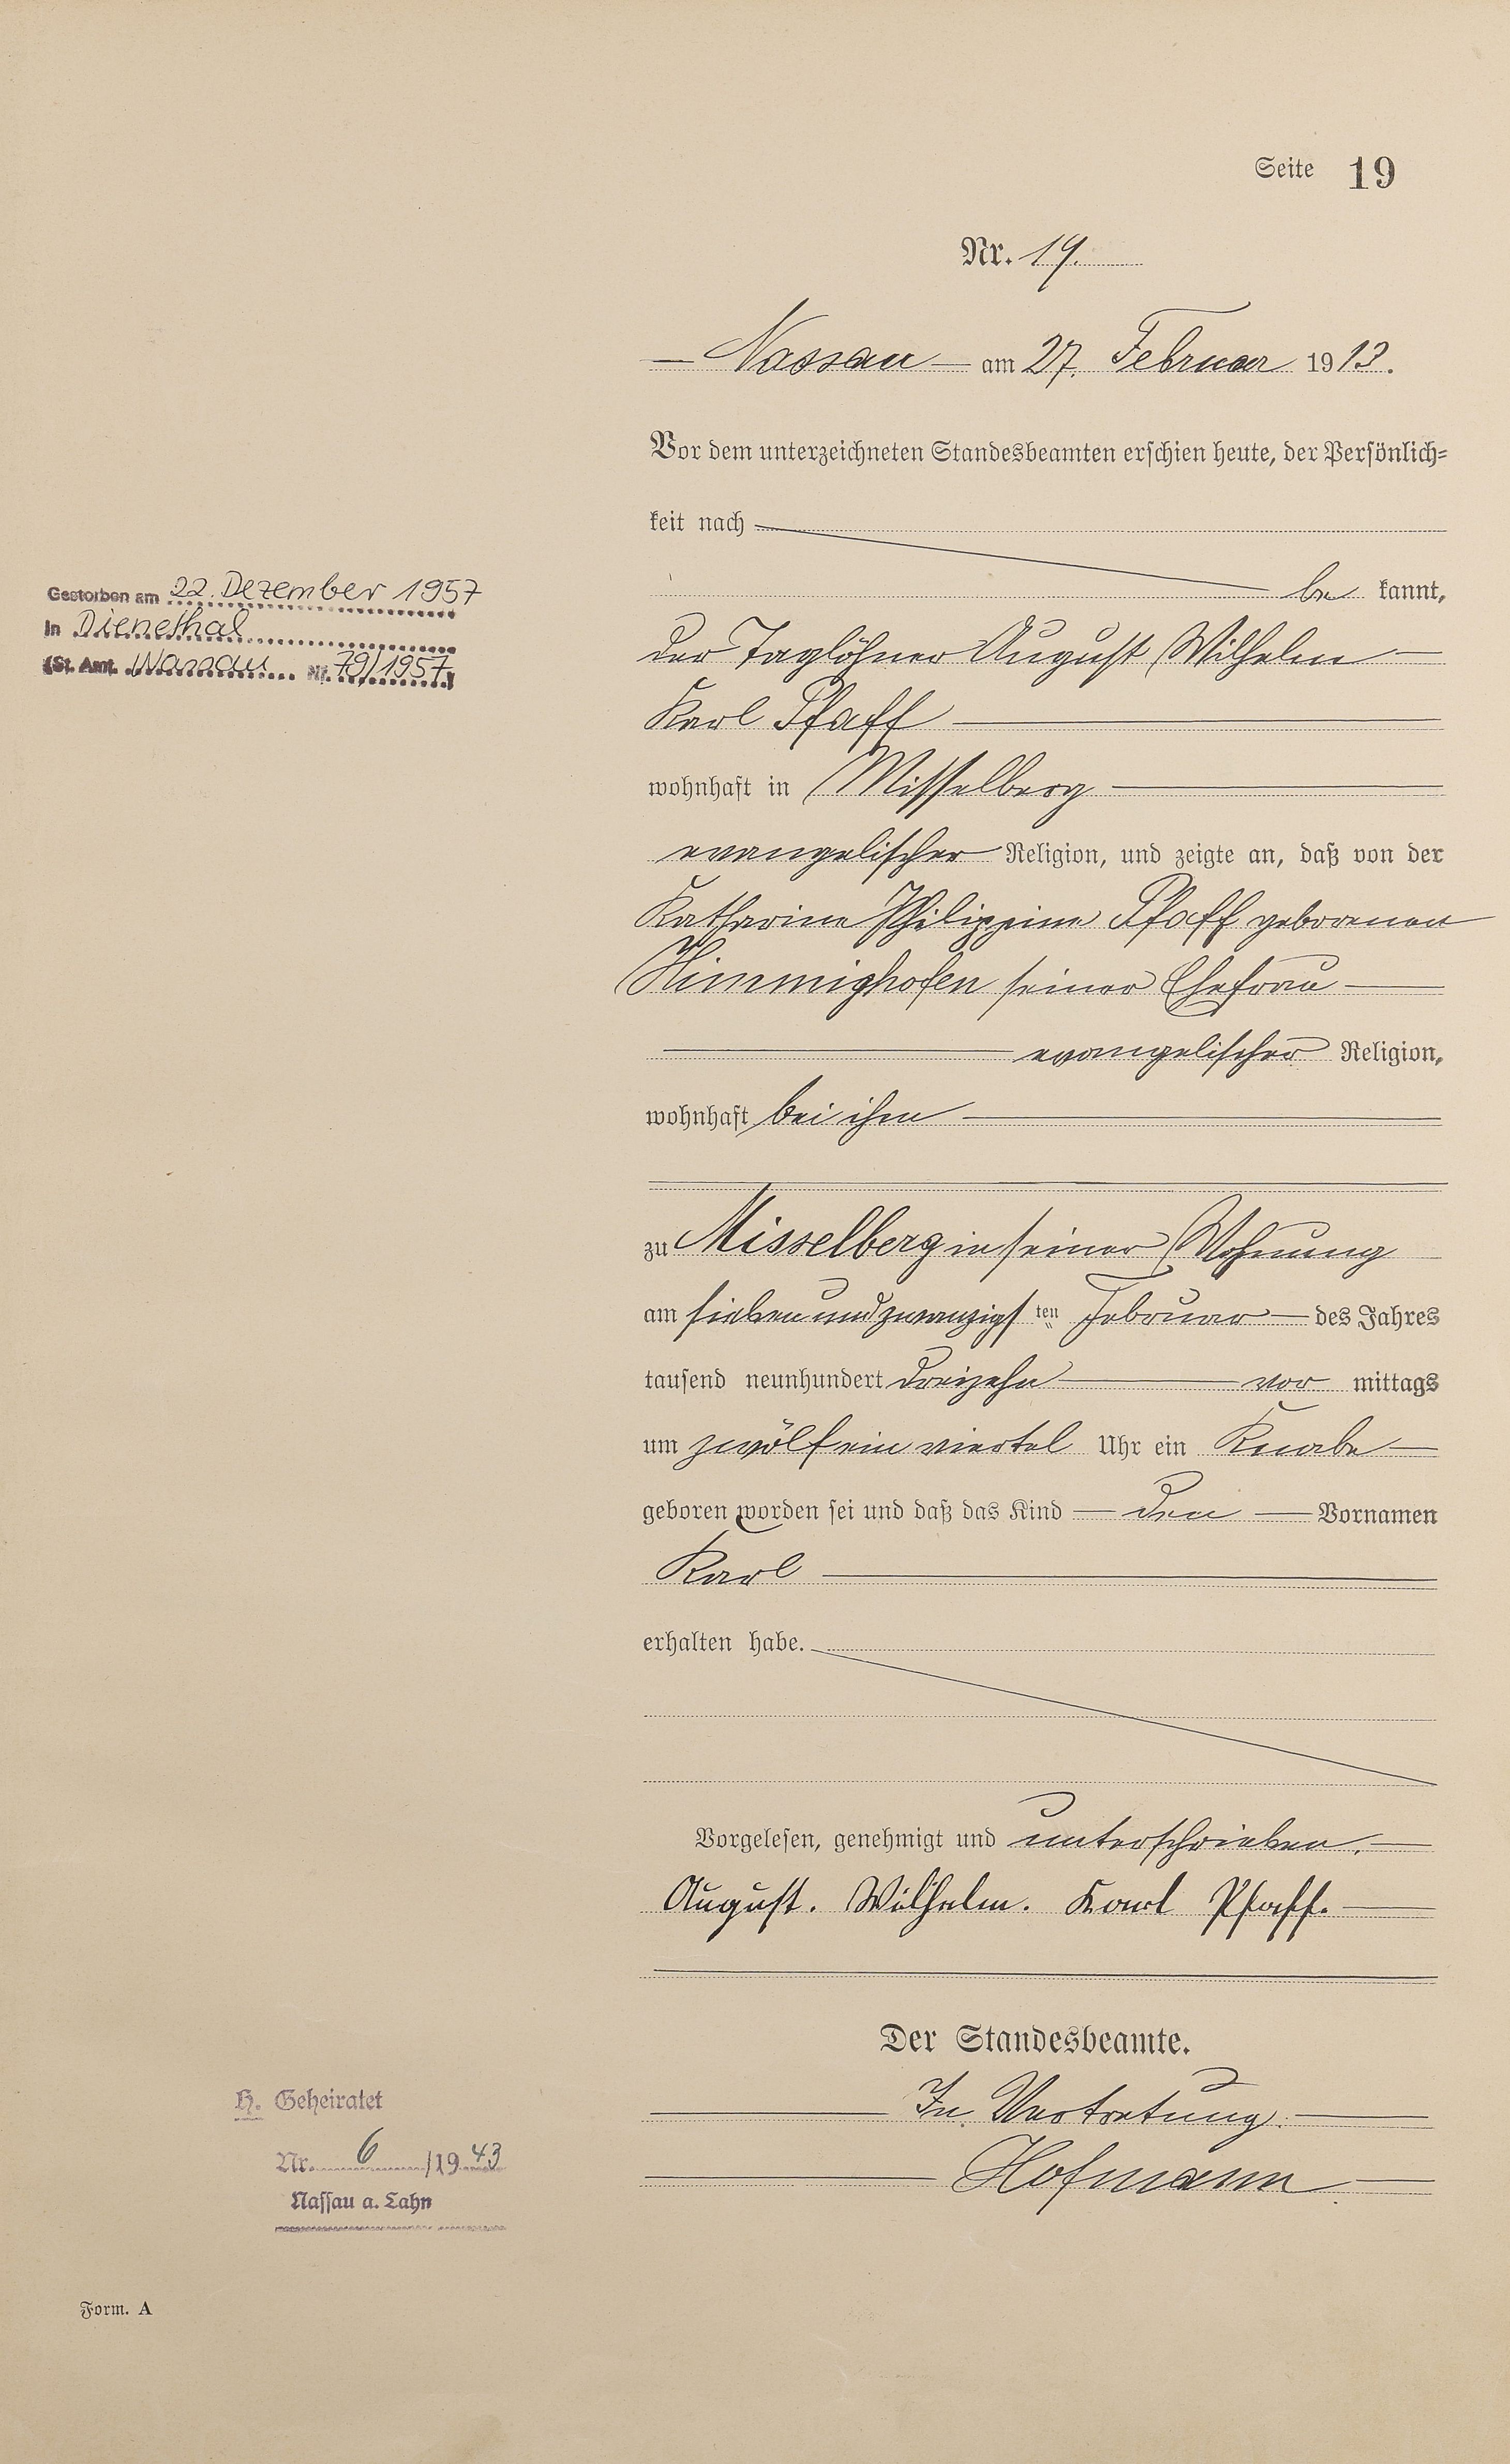 Seite 19
Nr. 19.
Nassau am 27. Februar 1913.
Vor dem unterzeichneten Standesbeamten erschien heute, der Persönlich=
keit nach
be kannt,
der Taglöhner August Wilhelm
Karl Pfaff
wohnhaft in Misselberg
evangelischer Religion, und zeigte an, daß von der
Katharine Philippine Pfaff geborenen
Himmighofen seiner Ehefrau
evangelischer Religion,
wohnhaft bei ihm
zu Misselberg in seiner Wohnung
am siebenundzwanzigsten Februar des Jahres
tausend neunhundert dreizehn vor mittags
um zwölf ein viertel Uhr ein Knabe
geboren worden sei und daß das Kind den Vornamen
Karl
erhalten habe.
Vorgelesen, genehmigt und unterschrieben.
August. Wilhelm. Karl Pfaff.
Der Standesbeamte.
In Vertretung.
Hofmann
Gestorben am 22. Dezember 1957
in Dienethal
(St. Amt. Nassau Nr. 79/1957)
H. Geheiratet
Nr. 6 /1943
Nassau a. Lahn
Form. A